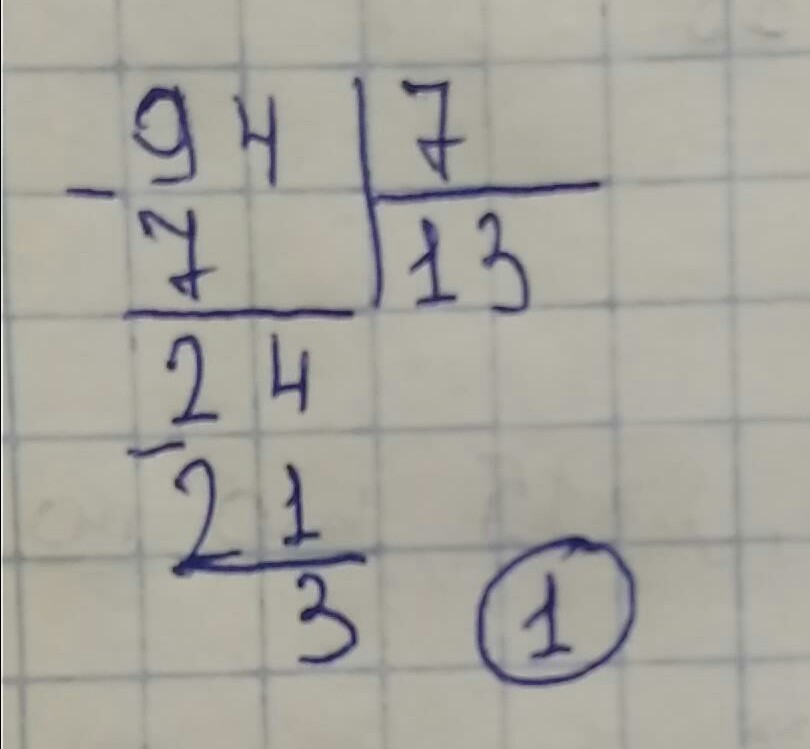 94 7
- 7 13
24
- 21
3 1